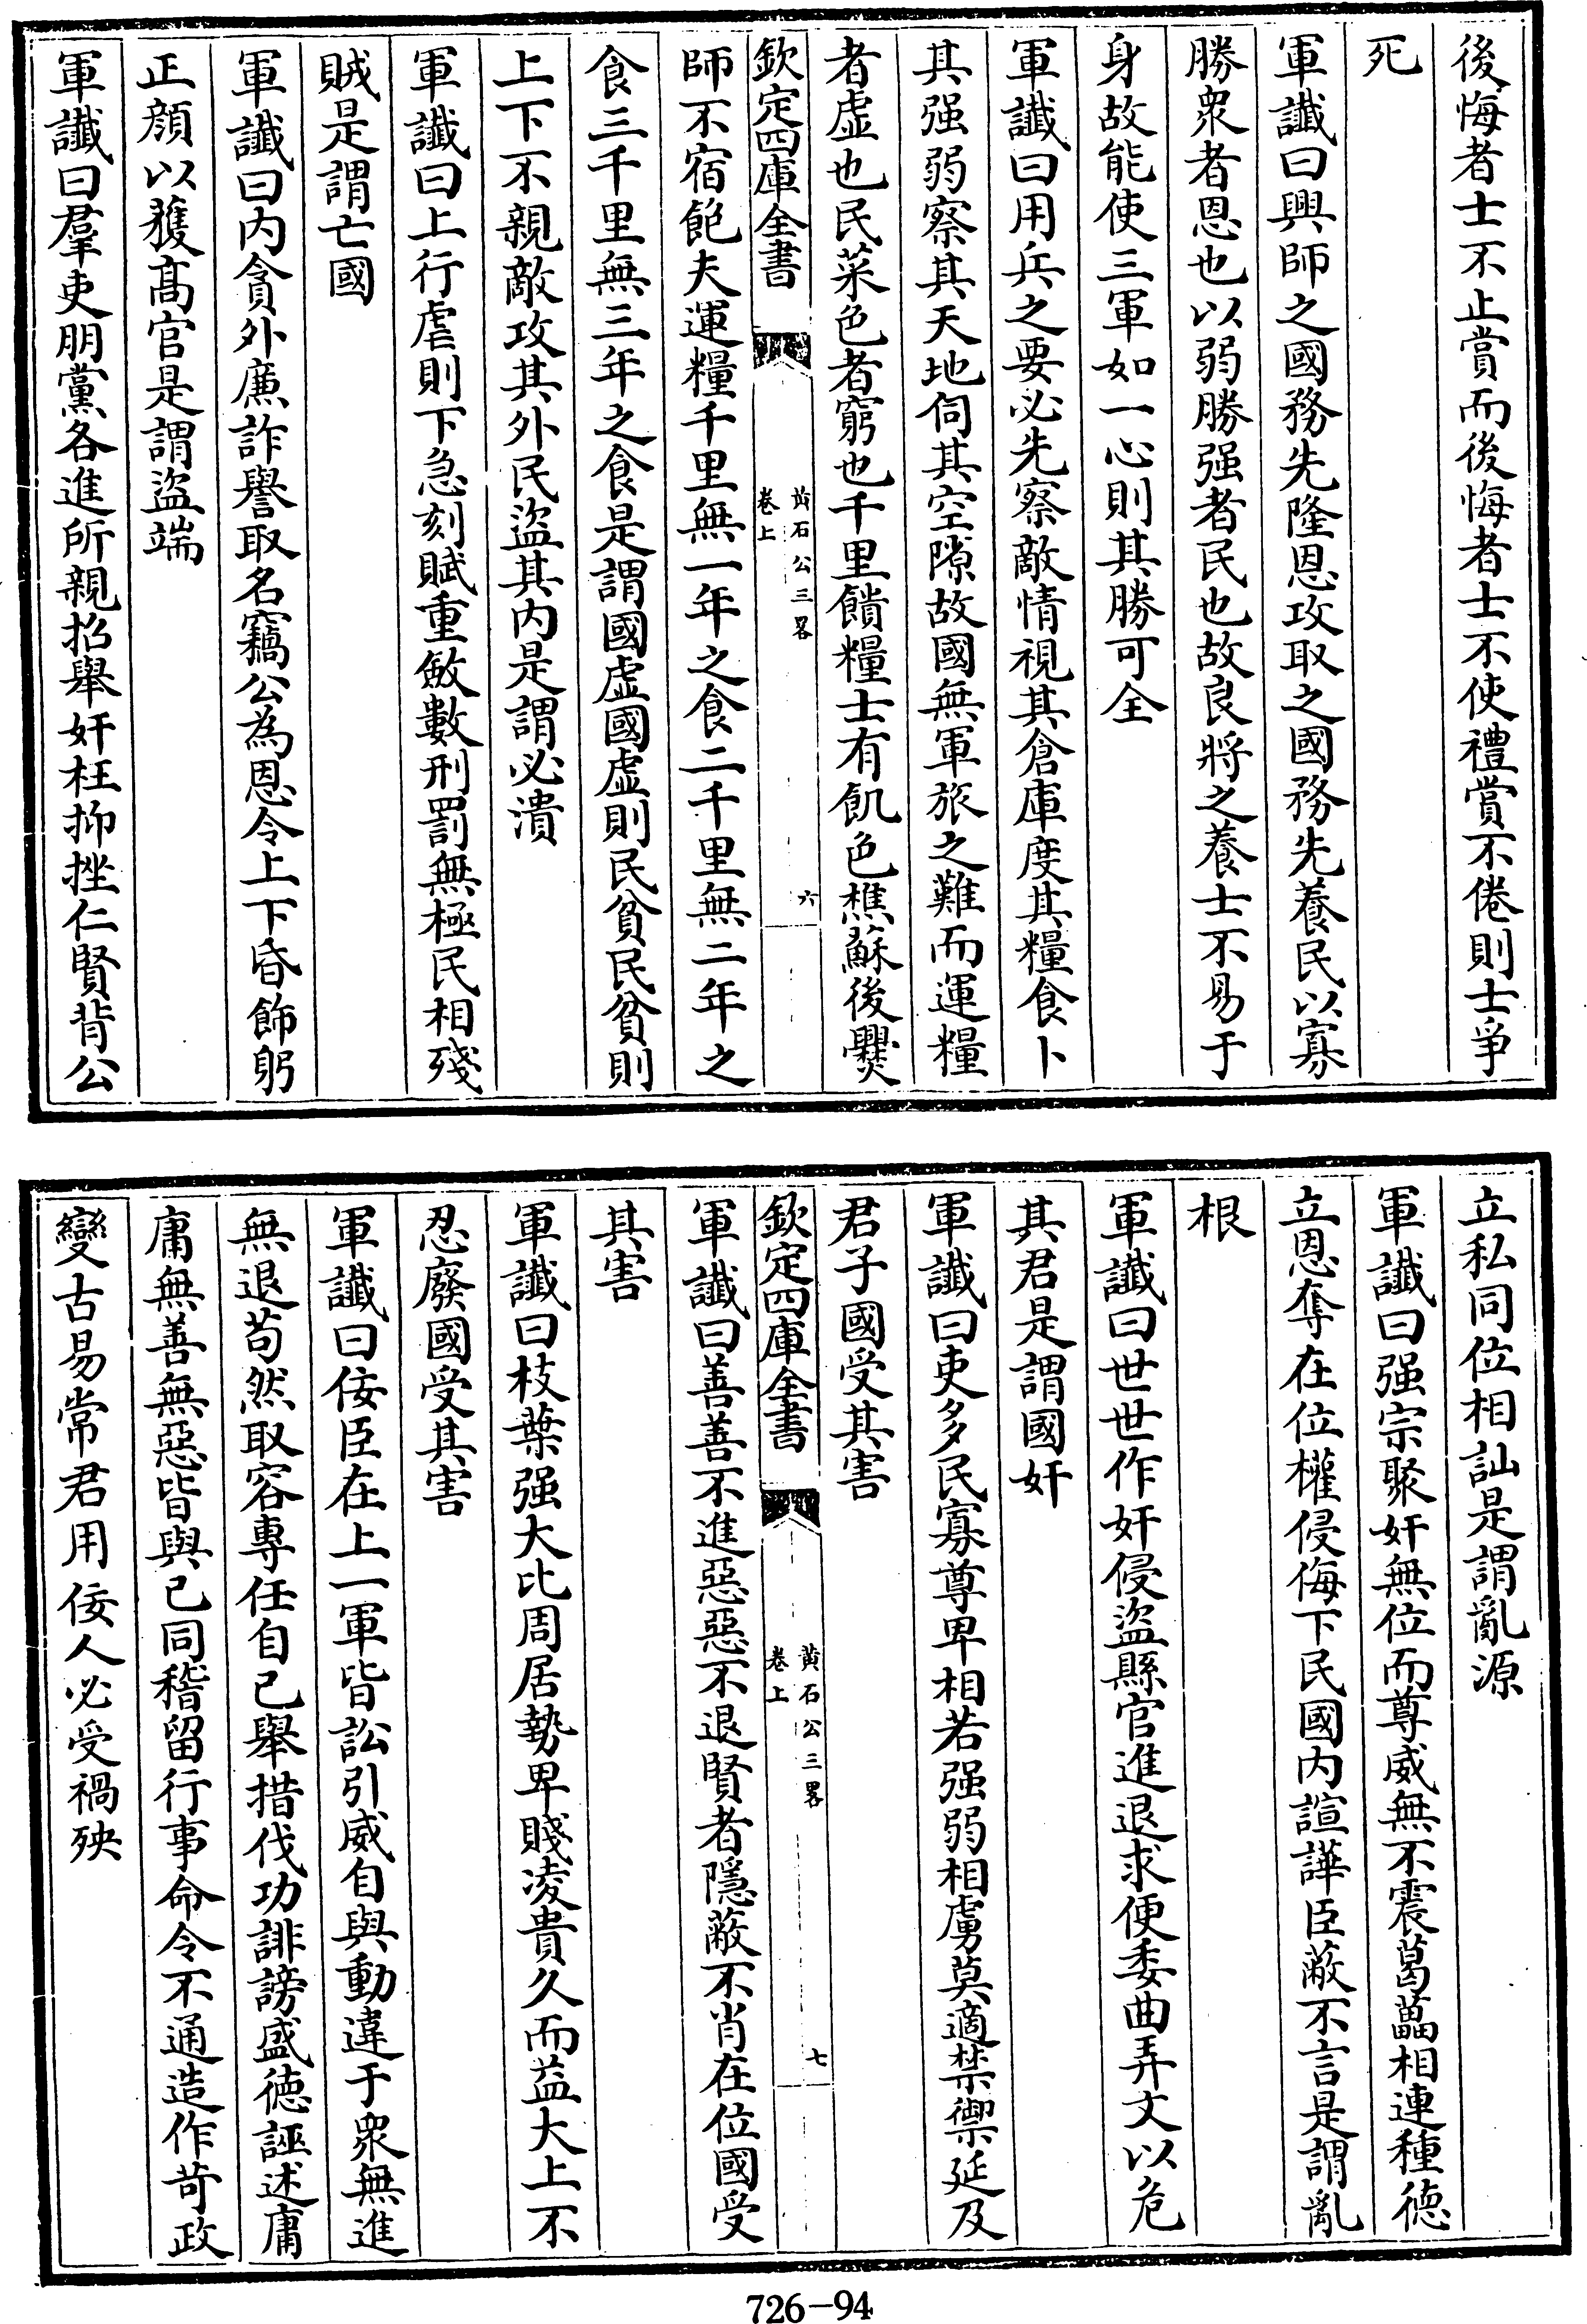 後悔者士不止賞而後悔者士不使禮賞不倦則士爭
死
軍讖曰興師之國務先隆恩攻取之國務先養民以寡
勝衆者恩也以弱勝强者民也故良將之養士不易于
身故能使三軍如一心則其勝可全
軍讖曰用兵之要必先察敵情視其倉庫度其糧食卜
其强弱察其天地伺其空隙故國無軍旅之難而運糧
者虛也民菜色者窮也千里饋糧士有飢色樵蘇後爨
欽定四庫全書
黃石公三畧
卷上
六
師不宿飽夫運糧千里無一年之食二千里無二年之
食三千里無三年之食是謂國虛國虛則民貧民貧則
上下不親敵攻其外民盜其內是謂必潰
軍讖曰上行虐則下急刻賦重斂數刑罰無極民相殘
賊是謂亡國
軍讖曰內貪外廉詐譽取名竊公為恩令上下昏飾躬
正顏以獲高官是謂盜端
軍讖曰羣吏朋黨各進所親招舉奸枉抑挫仁賢背公
立私同位相訕是謂亂源
軍讖曰强宗聚奸無位而尊威無不震葛藟相連種德
立恩奪在位權侵侮下民國內諠譁臣蔽不言是謂亂
根
軍讖曰世世作奸侵盜縣官進退求便委曲弄文以危
其君是謂國奸
軍讖曰吏多民寡尊卑相若强弱相虜莫適禁禦延及
君子國受其害
欽定四庫全書
黃石公三畧
卷上
七
軍讖曰善善不進惡惡不退賢者隱蔽不肖在位國受
其害
軍讖曰枝葉强大比周居勢卑賤凌貴久而益大上不
忍廢國受其害
軍讖曰佞臣在上一軍皆訟引威自與動違于衆無進
無退苟然取容專任自已舉措伐功誹謗盛德誣述庸
庸無善無惡皆與已同稽留行事命令不通造作苛政
變古易常君用佞人必受禍殃
726-94